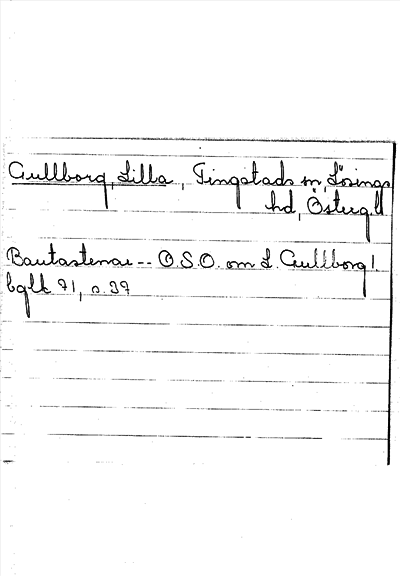 Gullborg, Lilla, Tingstads sn, Lösings
hd, Östergl
Bautastenar -- O.S.O. om L. Gullborg!
bglk. 71, s. 39